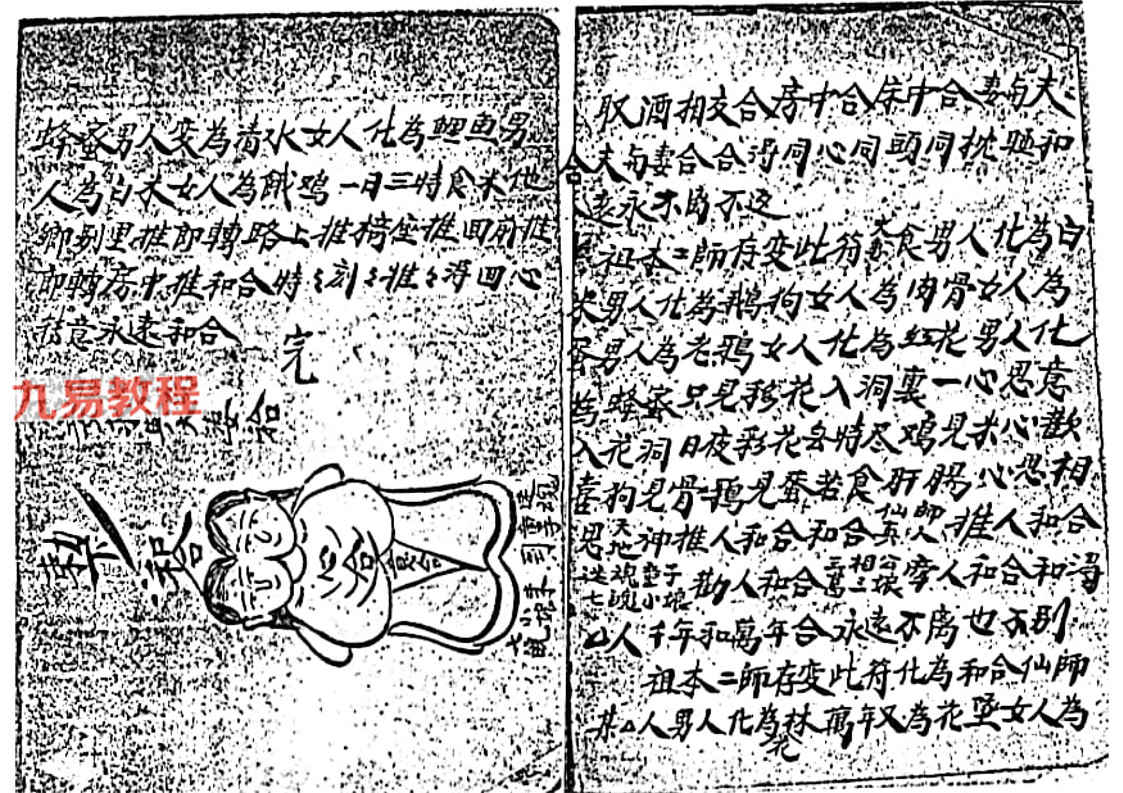 取酒相交合房中合床中合妻与夫
合夫与妻合合得同心同頭同枕睡和
遠永不
祖本二師存変此符食男人化為白
米男人化為鵝狗女人為肉骨女人為
蛋男人為老鴉女人化為紅花男人化
為蜂蜜只見移花入洞裏一心思意
入花洞日夜彩花各時尽鸡見米心歡
喜狗見骨鴉見蛋若食肝腸心思相
思天地神推人和合和合仙真師人推人和合
迷魂童子七魄小娘勸人和合三萬相公二娘齊人和合和得
人千年和萬年合永遠不离也不别
祖本二師存変此符化為和合仙師
某人男人化為林萬年又為花女人為
完
蜂蚤男人变為清水女人化為鯉魚男
人為白米女人為餓鸡一日三時食米他
鄉别里推即轉路上推椅座推回前推
即轉房中推和合時々刻々推々得回心
轉意永遠和合
完
九易教程
和合
心合